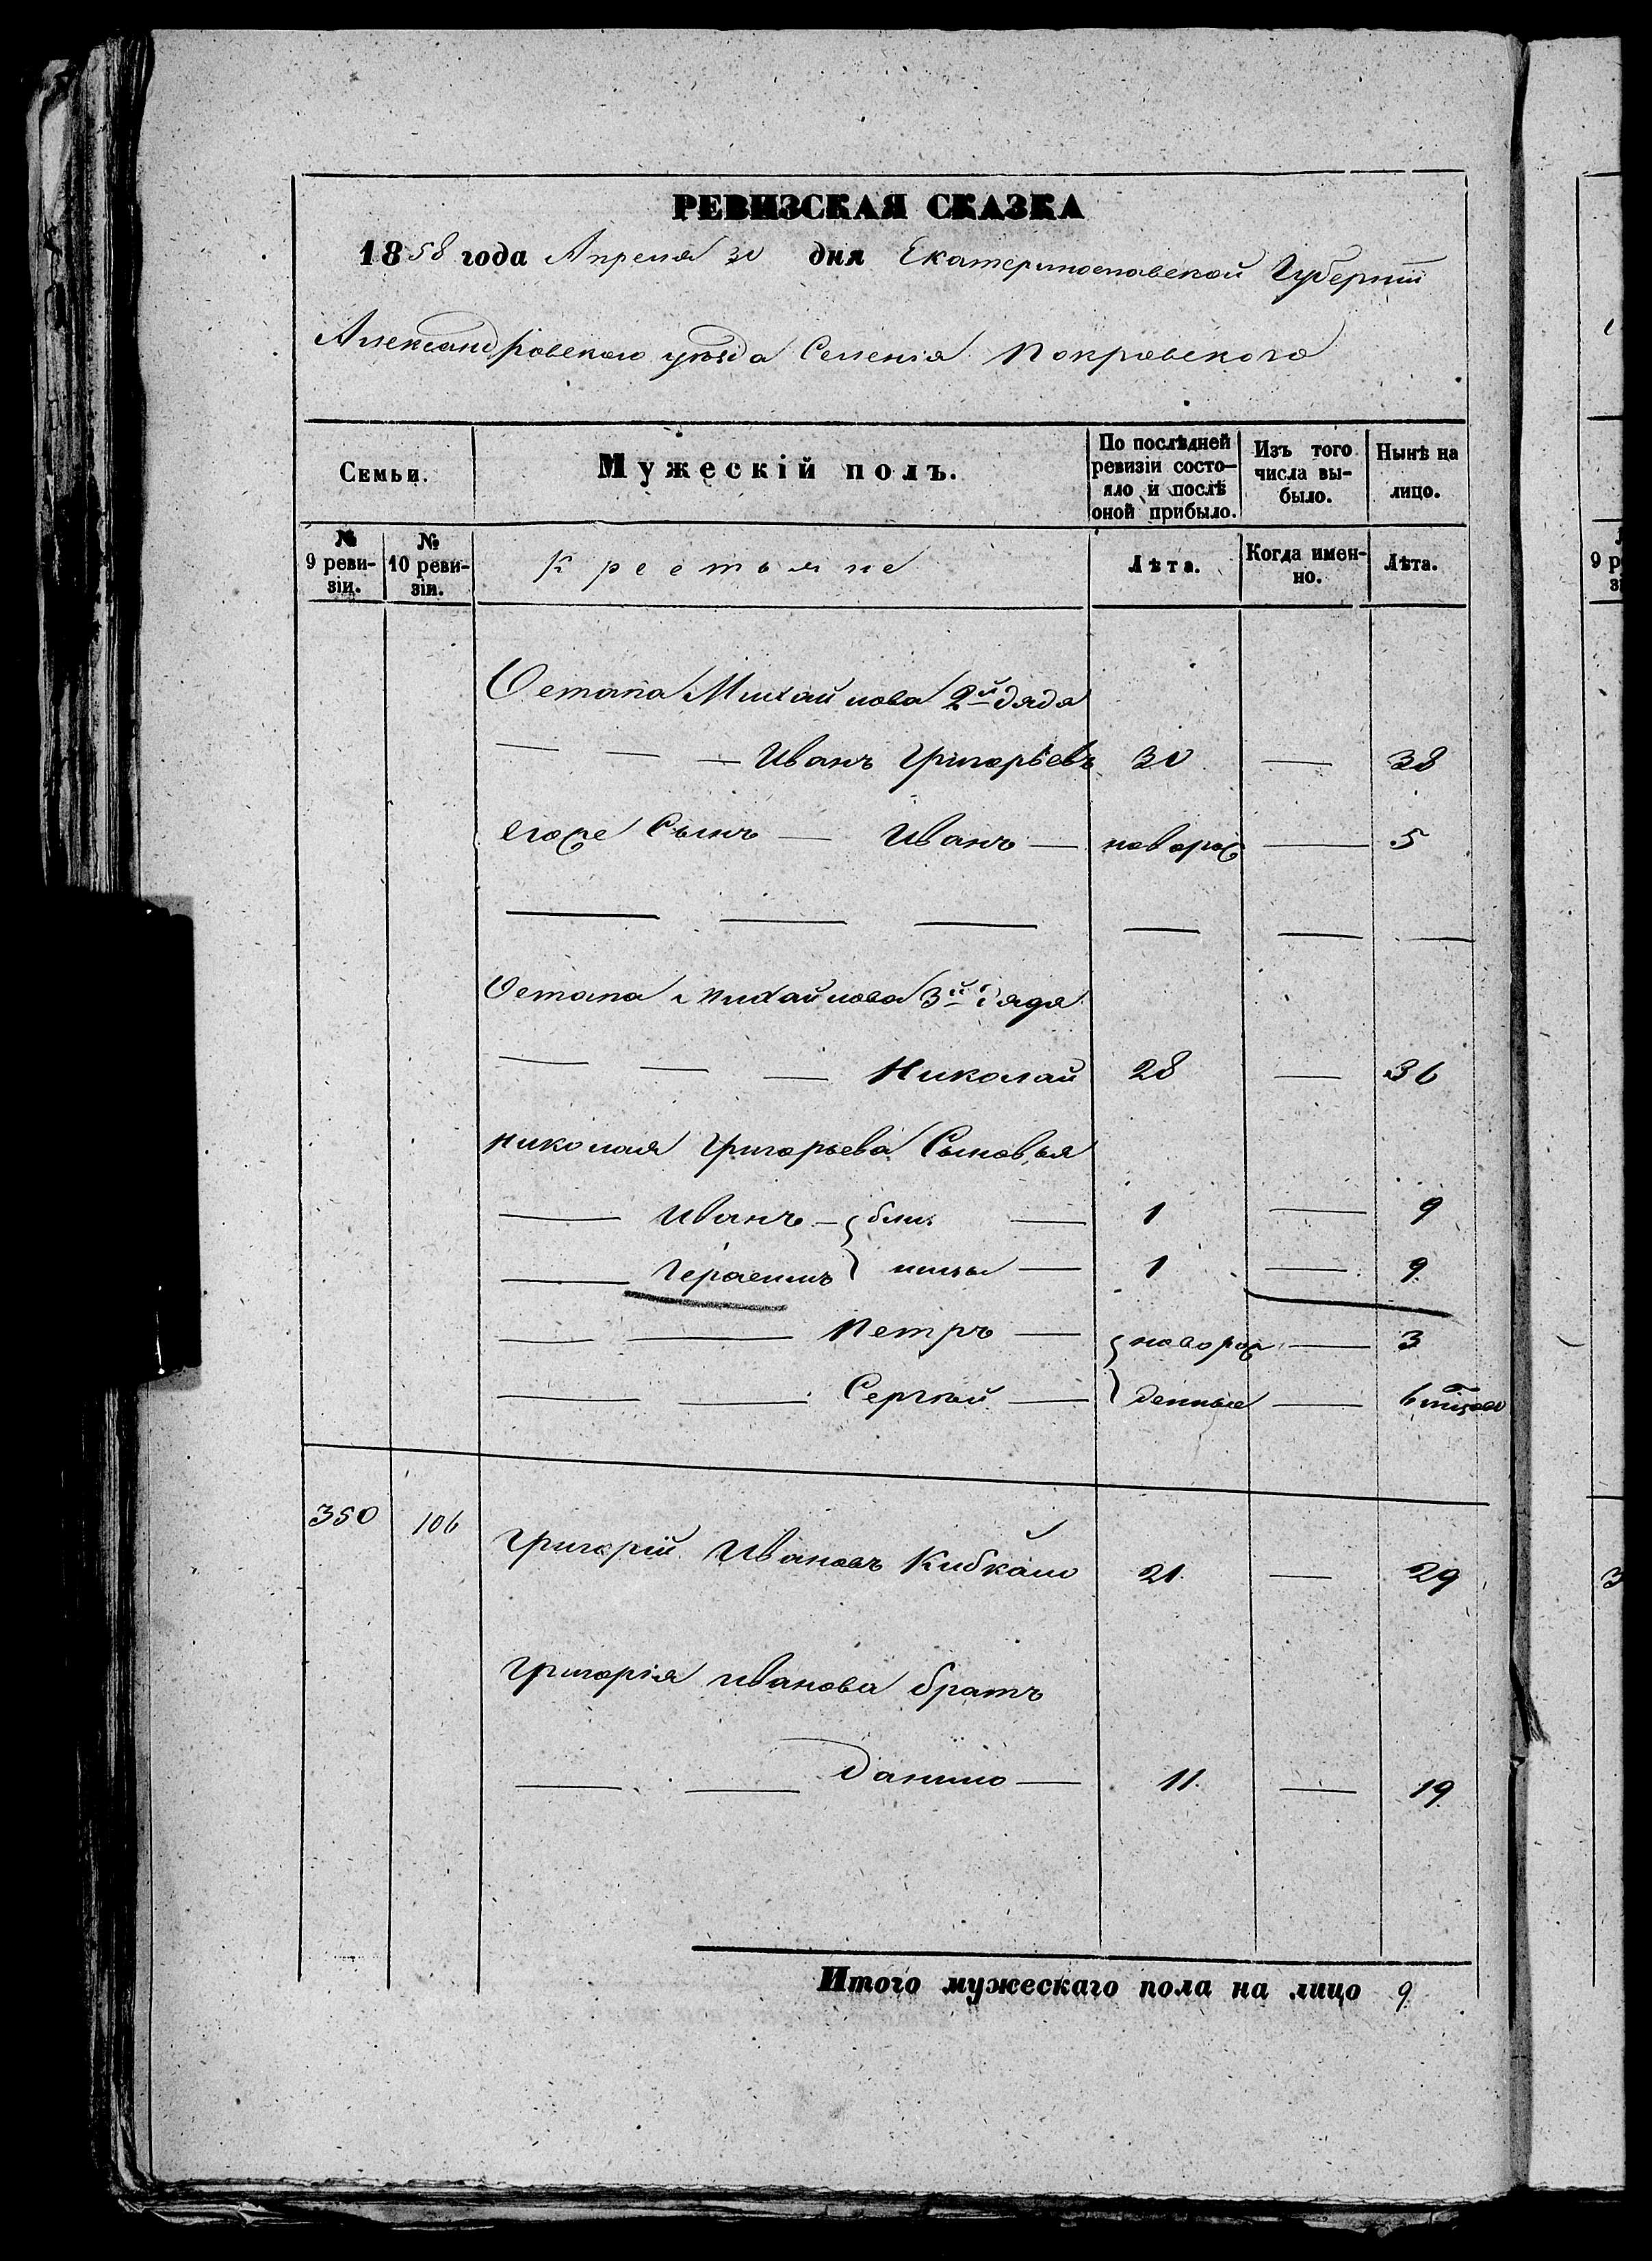 РЕВИЗСКАЯ СКАЗКА
1858 года Апреля 30 дня Екатеринославской Губерніи
Александровскаго уѣзда Селенія Покровскаго
Семьи.
Мужескій полъ.
По послѣдней ревизіи состояло и послѣ оной прибыло.
Изъ того числа выбыло.
Нынѣ на лицо.
№ 9 ревизіи.
№ 10 ревизіи.
Крестьяне
Лѣта.
Когда именно.
Лѣта.
Остапа Михайлова 2й дядя
— — — Иванъ Григорьевъ 30 — 38
егоже Сынъ — Иванъ — поворож — 5
— — — — — —
Остапа Михайлова 3й дядя
— — — Николай 28 — 36
Николая Григорьева Сыновья
— Иванъ — { близ — 1 — 9
— Герасимъ } нецы — 1 — 9
— — Петръ — { новорож — 3
— — Сергѣй — } денные — 6 мѣсяц
350 106 Григорій Ивановъ Кибкало 21 — 29
Григорія Иванова братъ
— — Данило — 11 — 19
Итого мужескаго пола на лицо 9